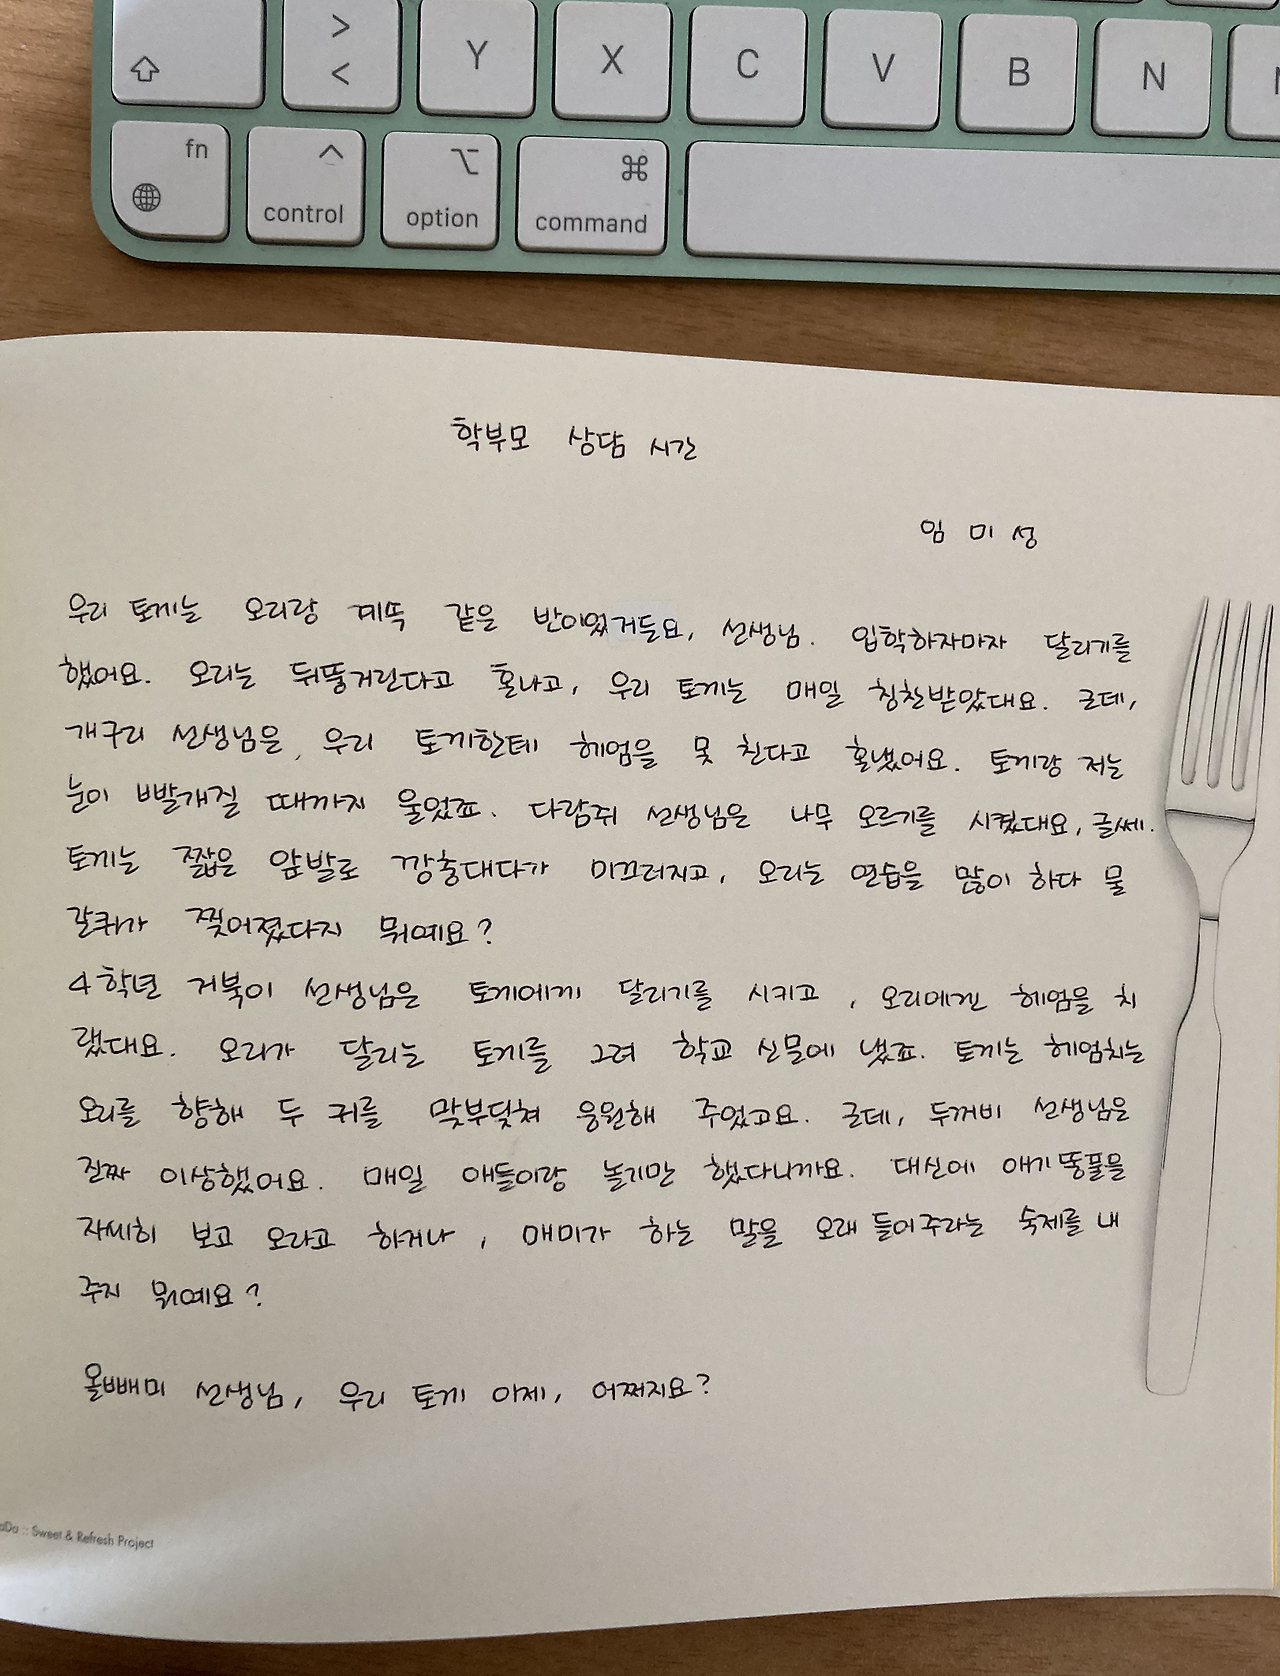 >
<
Y
X
C
V
B
N
fn
control
option
command
학부모 상담 시간
임 미 성
우리 토끼는 오리랑 계속 같은 반이었거든요, 선생님. 입학하자마자 달리기를
했어요. 오리는 뒤뚱거린다고 혼나고, 우리 토끼는 매일 칭찬받았대요. 근데,
개구리 선생님은, 우리 토끼한테 헤엄을 못 친다고 혼냈어요. 토끼랑 저는
눈이 빨개질 때까지 울었죠. 다람쥐 선생님은 나무 오르기를 시켰대요, 글쎄.
토끼는 짧은 앞발로 깡충대다가 미끄러지고, 오리는 연습을 많이 하다 물
갈퀴가 찢어졌다지 뭐예요?
4학년 거북이 선생님은 토끼에게 달리기를 시키고, 오리에겐 헤엄을 치
랬대요. 오리가 달리는 토끼를 그려 학교 신문에 냈죠. 토끼는 헤엄치는
오리를 향해 두 귀를 맞부딪쳐 응원해 주었고요. 근데, 두꺼비 선생님은
진짜 이상했어요. 매일 애들이랑 놀기만 했다니까요. 대신에 애기똥풀을
자세히 보고 오라고 하거나, 매미가 하는 말을 오래 들어주라는 숙제를 내
주지 뭐예요?
올빼미 선생님, 우리 토끼 이제, 어쩌지요?
:: Sweet & Refresh Project